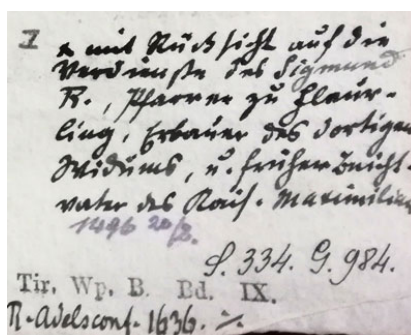 I
" mit Rücksicht auf die
Verdienste des Sigmund
R., Pfarrer zu Flaur-
ling, Erbauer des dortigen
Widums, u. früher Beicht-
vater des Kais. Maximilian
1496 20/3.
S. 334. G. 984.
Tir. Wp. B. Bd. IX.
R. Adelsconf. 1636. ·/.